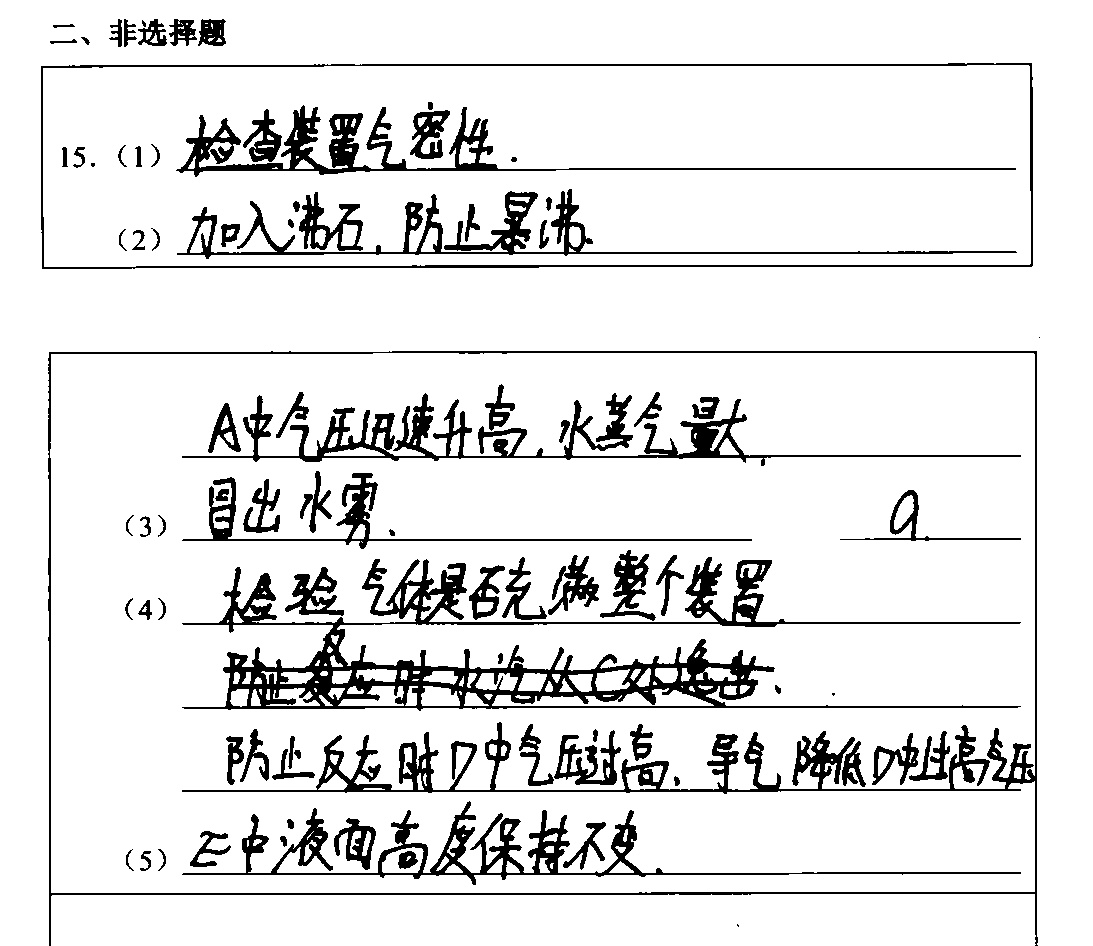 二、非选择题
15.（1）检查装置气密性.
（2）加入沸石，防止暴沸.
A中气压迅速升高，水蒸气量大，
（3）冒出水雾. a.
（4）检验气体是否充满整个装置.
防止反应时水汽从C处逸出.
防止反应时D中气压过高，导气 降低D中过高气压
（5）E中液面高度保持不变.